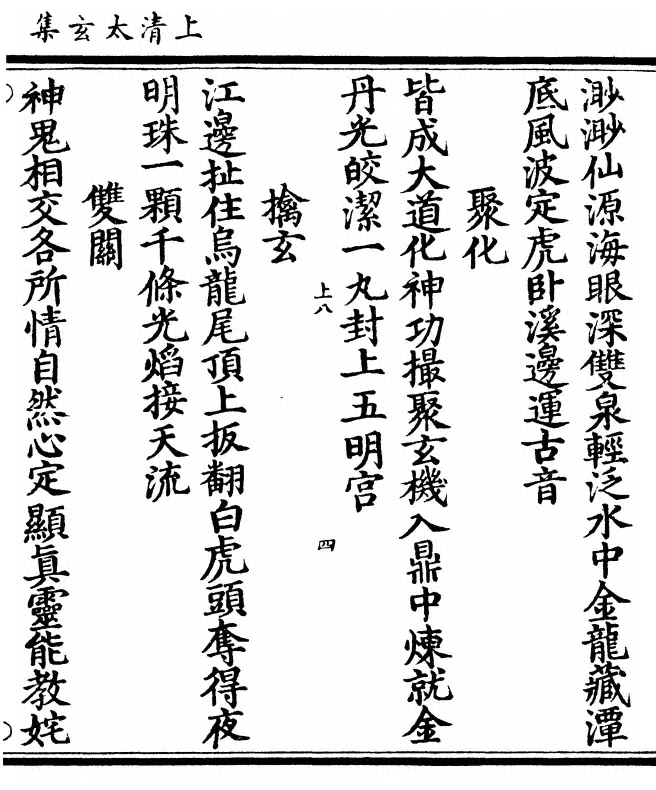 上清太玄集
渺渺仙源海眼深雙泉輕泛水中金龍藏潭
底風波定虎卧溪邊運古音
聚化
皆成大道化神功撮聚玄機入鼎中煉就金
丹光皎潔一丸封上五明宮
上八
四
擒玄
江邊扯住烏龍尾頂上扳翻白虎頭奪得夜
明珠一顆千條光焰接天流
雙關
神鬼相交各所情自然心定顯眞靈能教姹